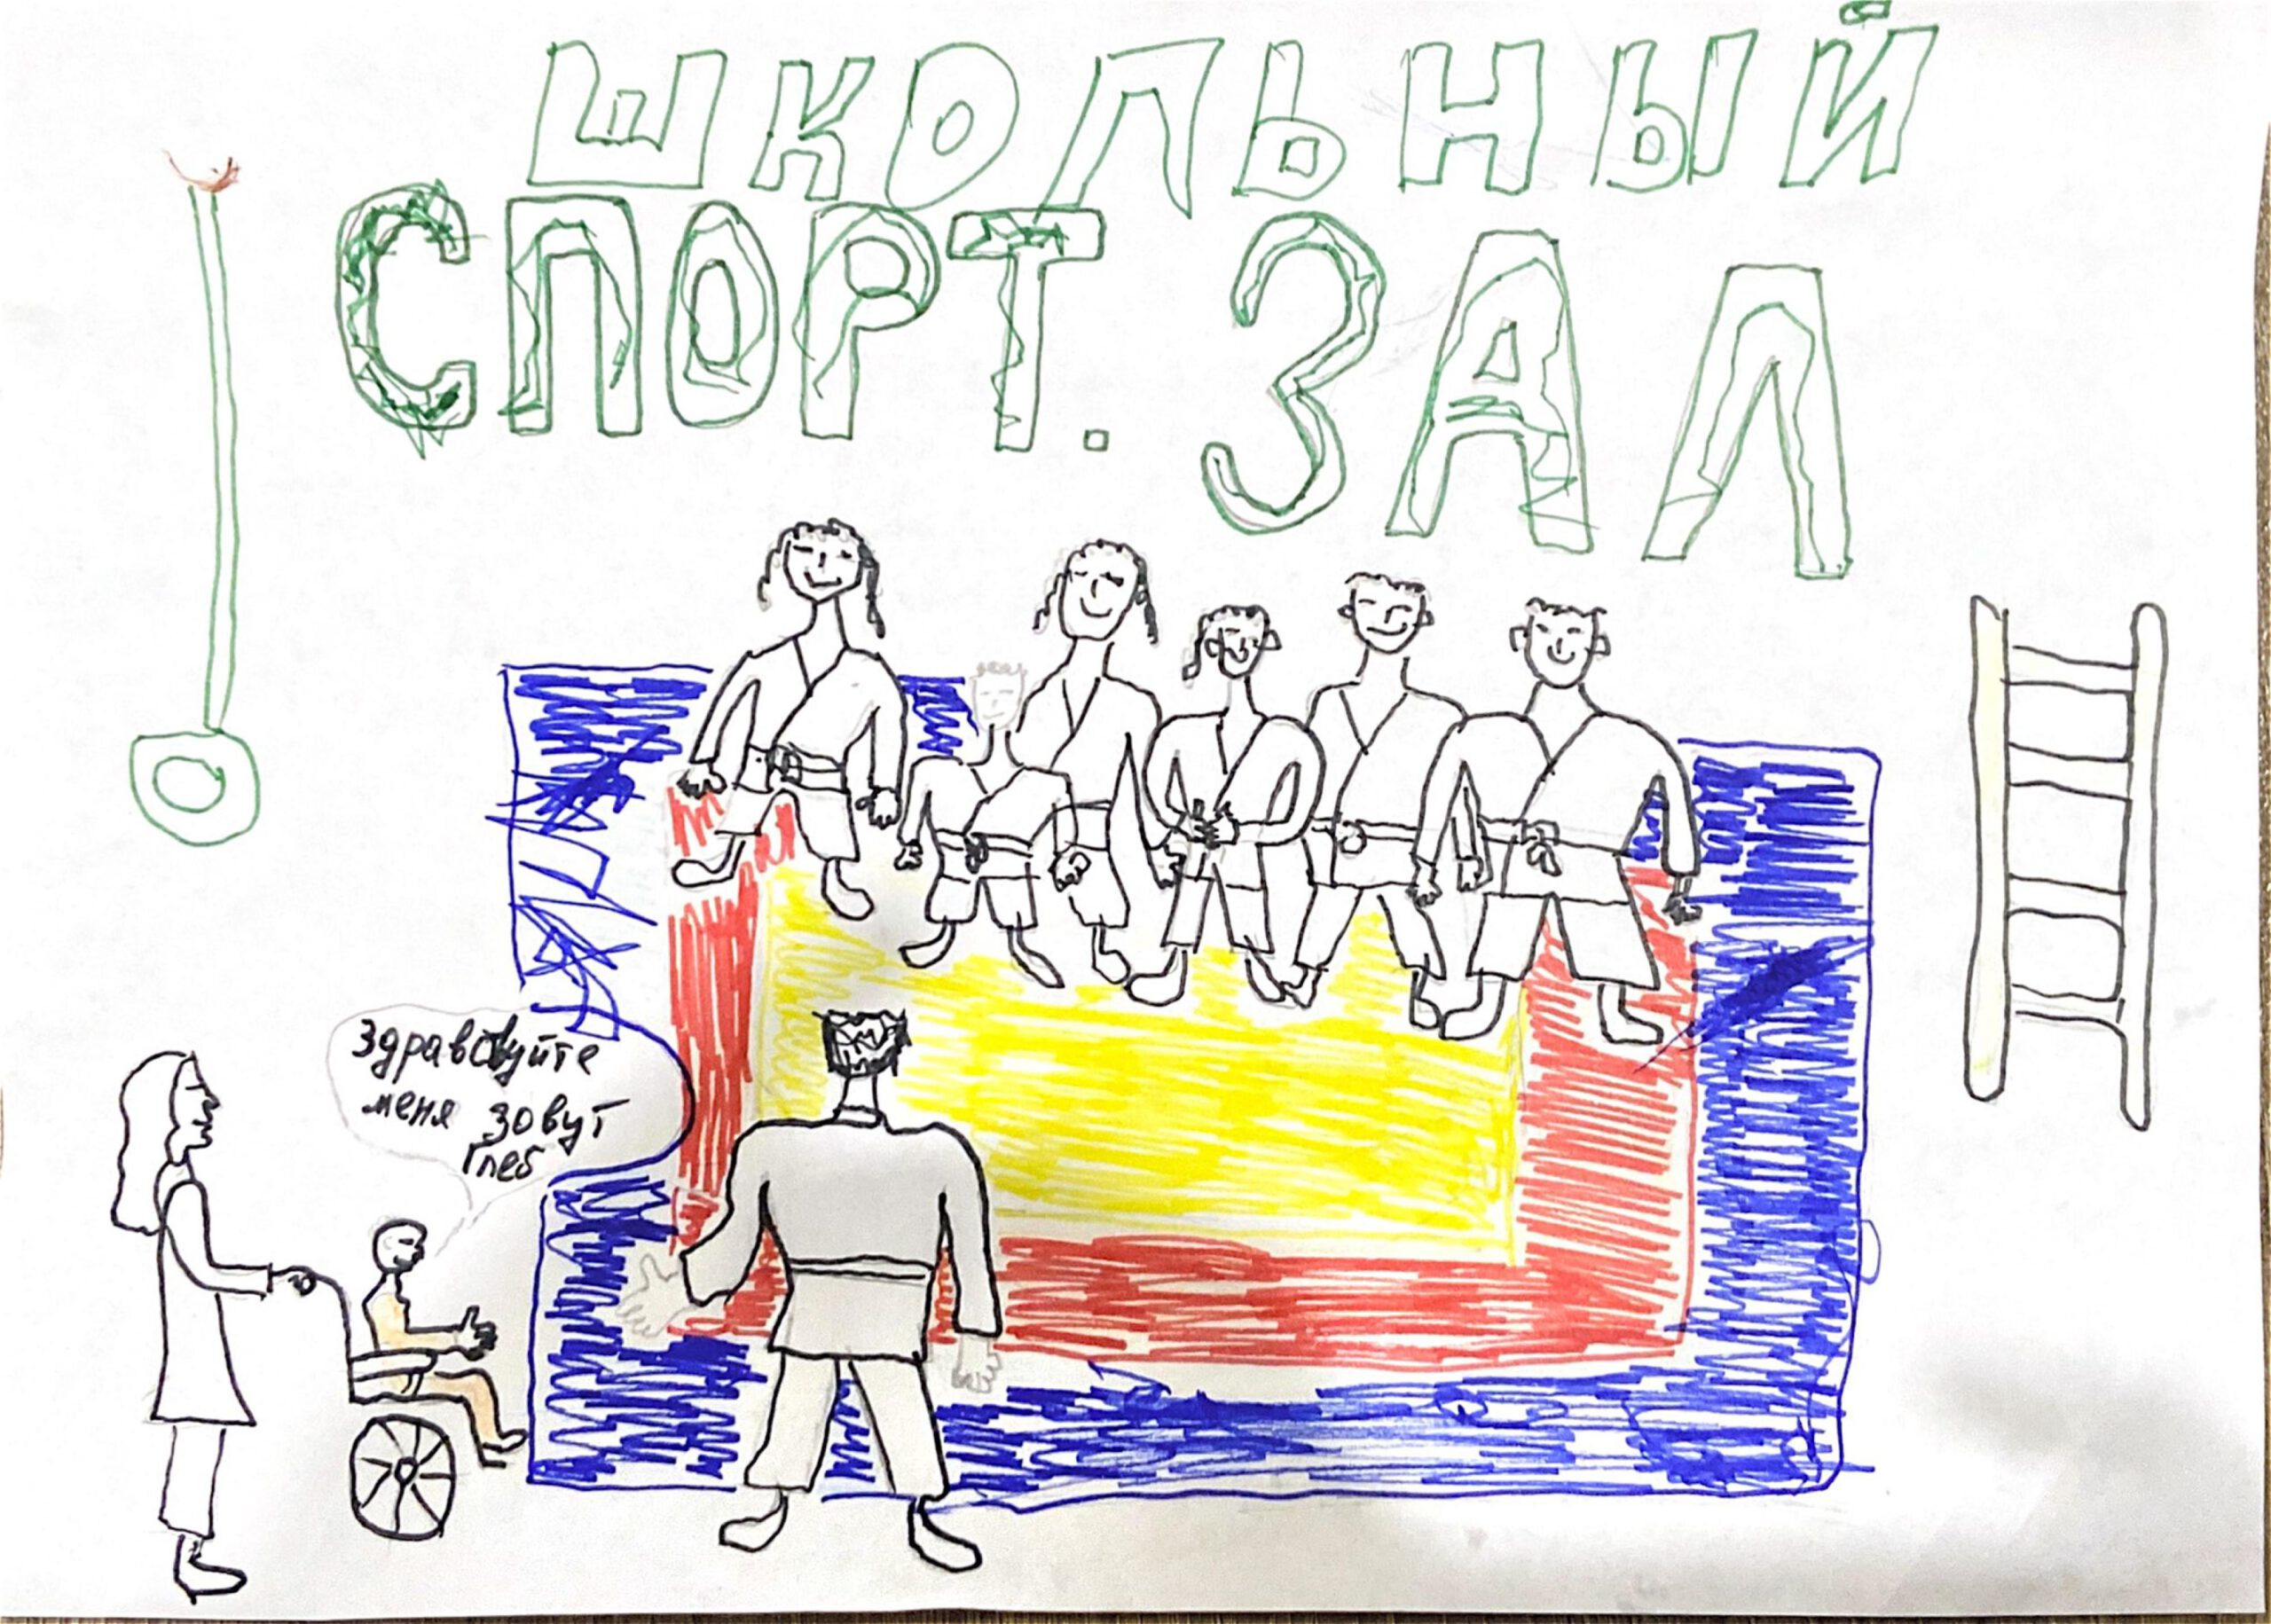 ШКОЛЬНЫЙ
СПОРТ. ЗАЛ
здравствуйте
меня зовут
Глеб